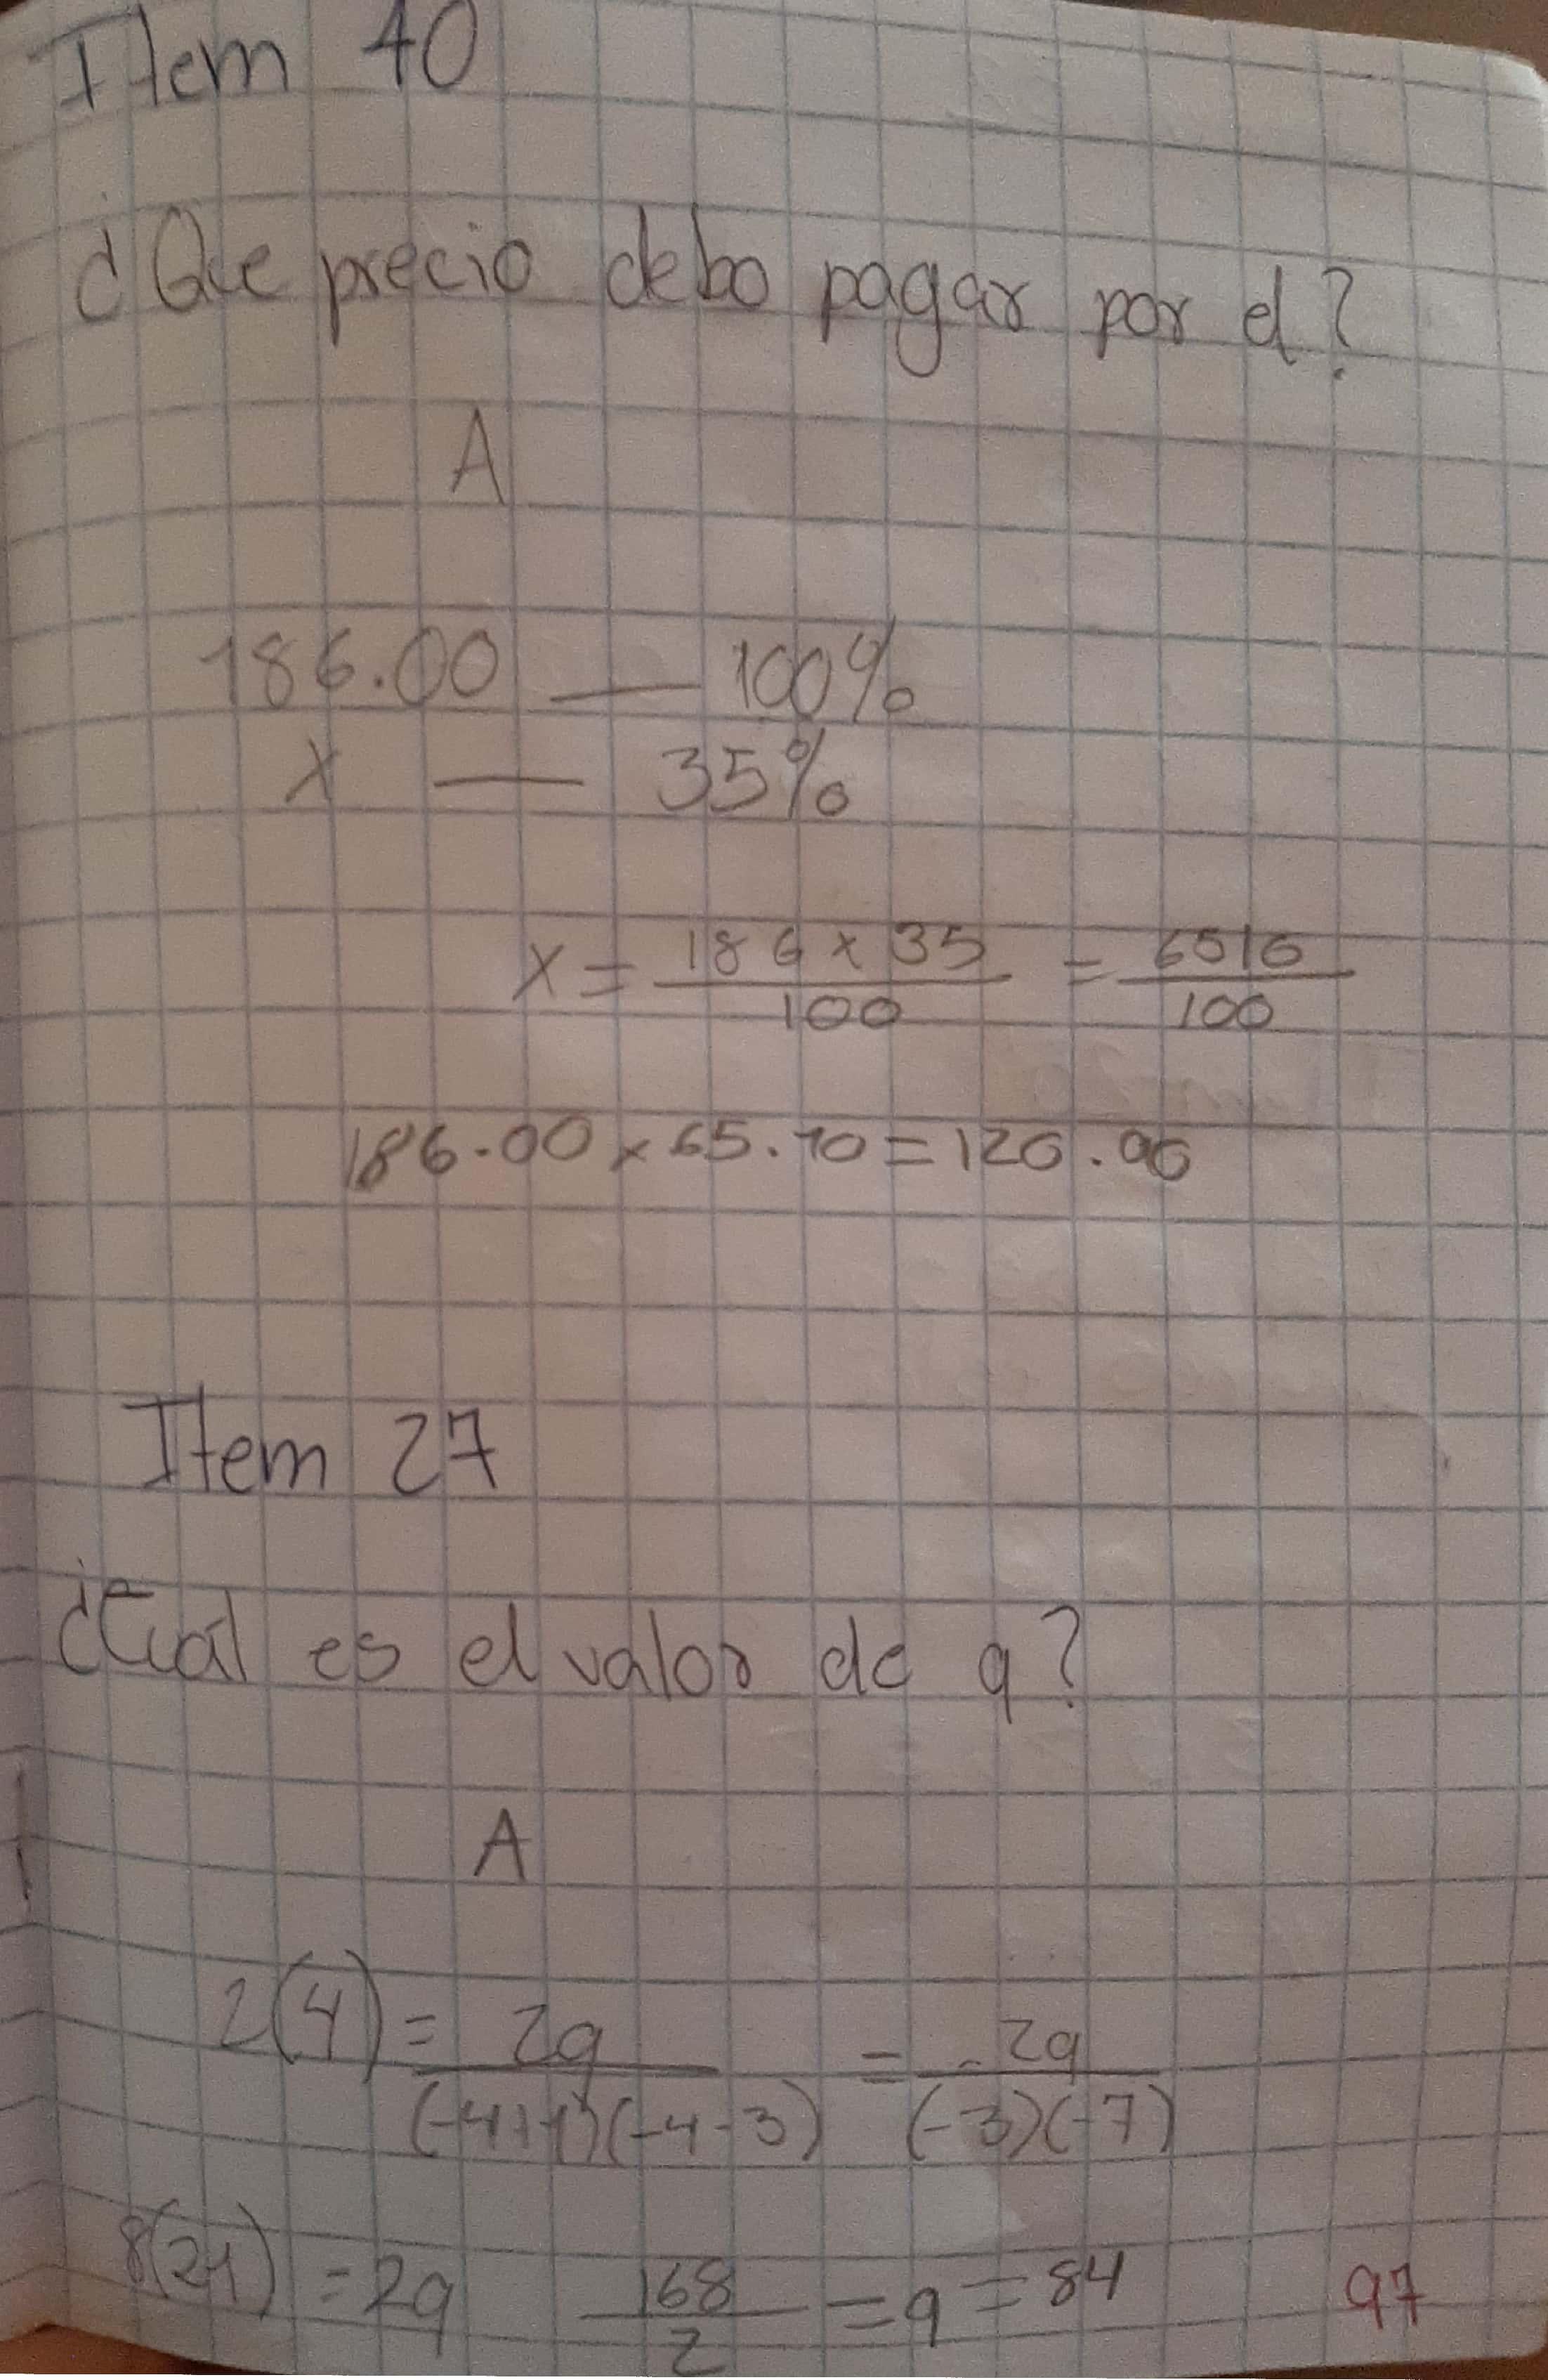 Item 40
¿Que precio debo pagar por el?
A
186.00 — 100%
x — 35%
x = 186 x 35 / 100 = 6510 / 100
186.00 x 65.10 = 120.90
Item 27
¿Cuál es el valor de q?
A
2(4) = 2q / (-4+1)(-4-3) = 2q / (-3)(-7)
8(21) = 2q 168 / 2 = q = 84
97